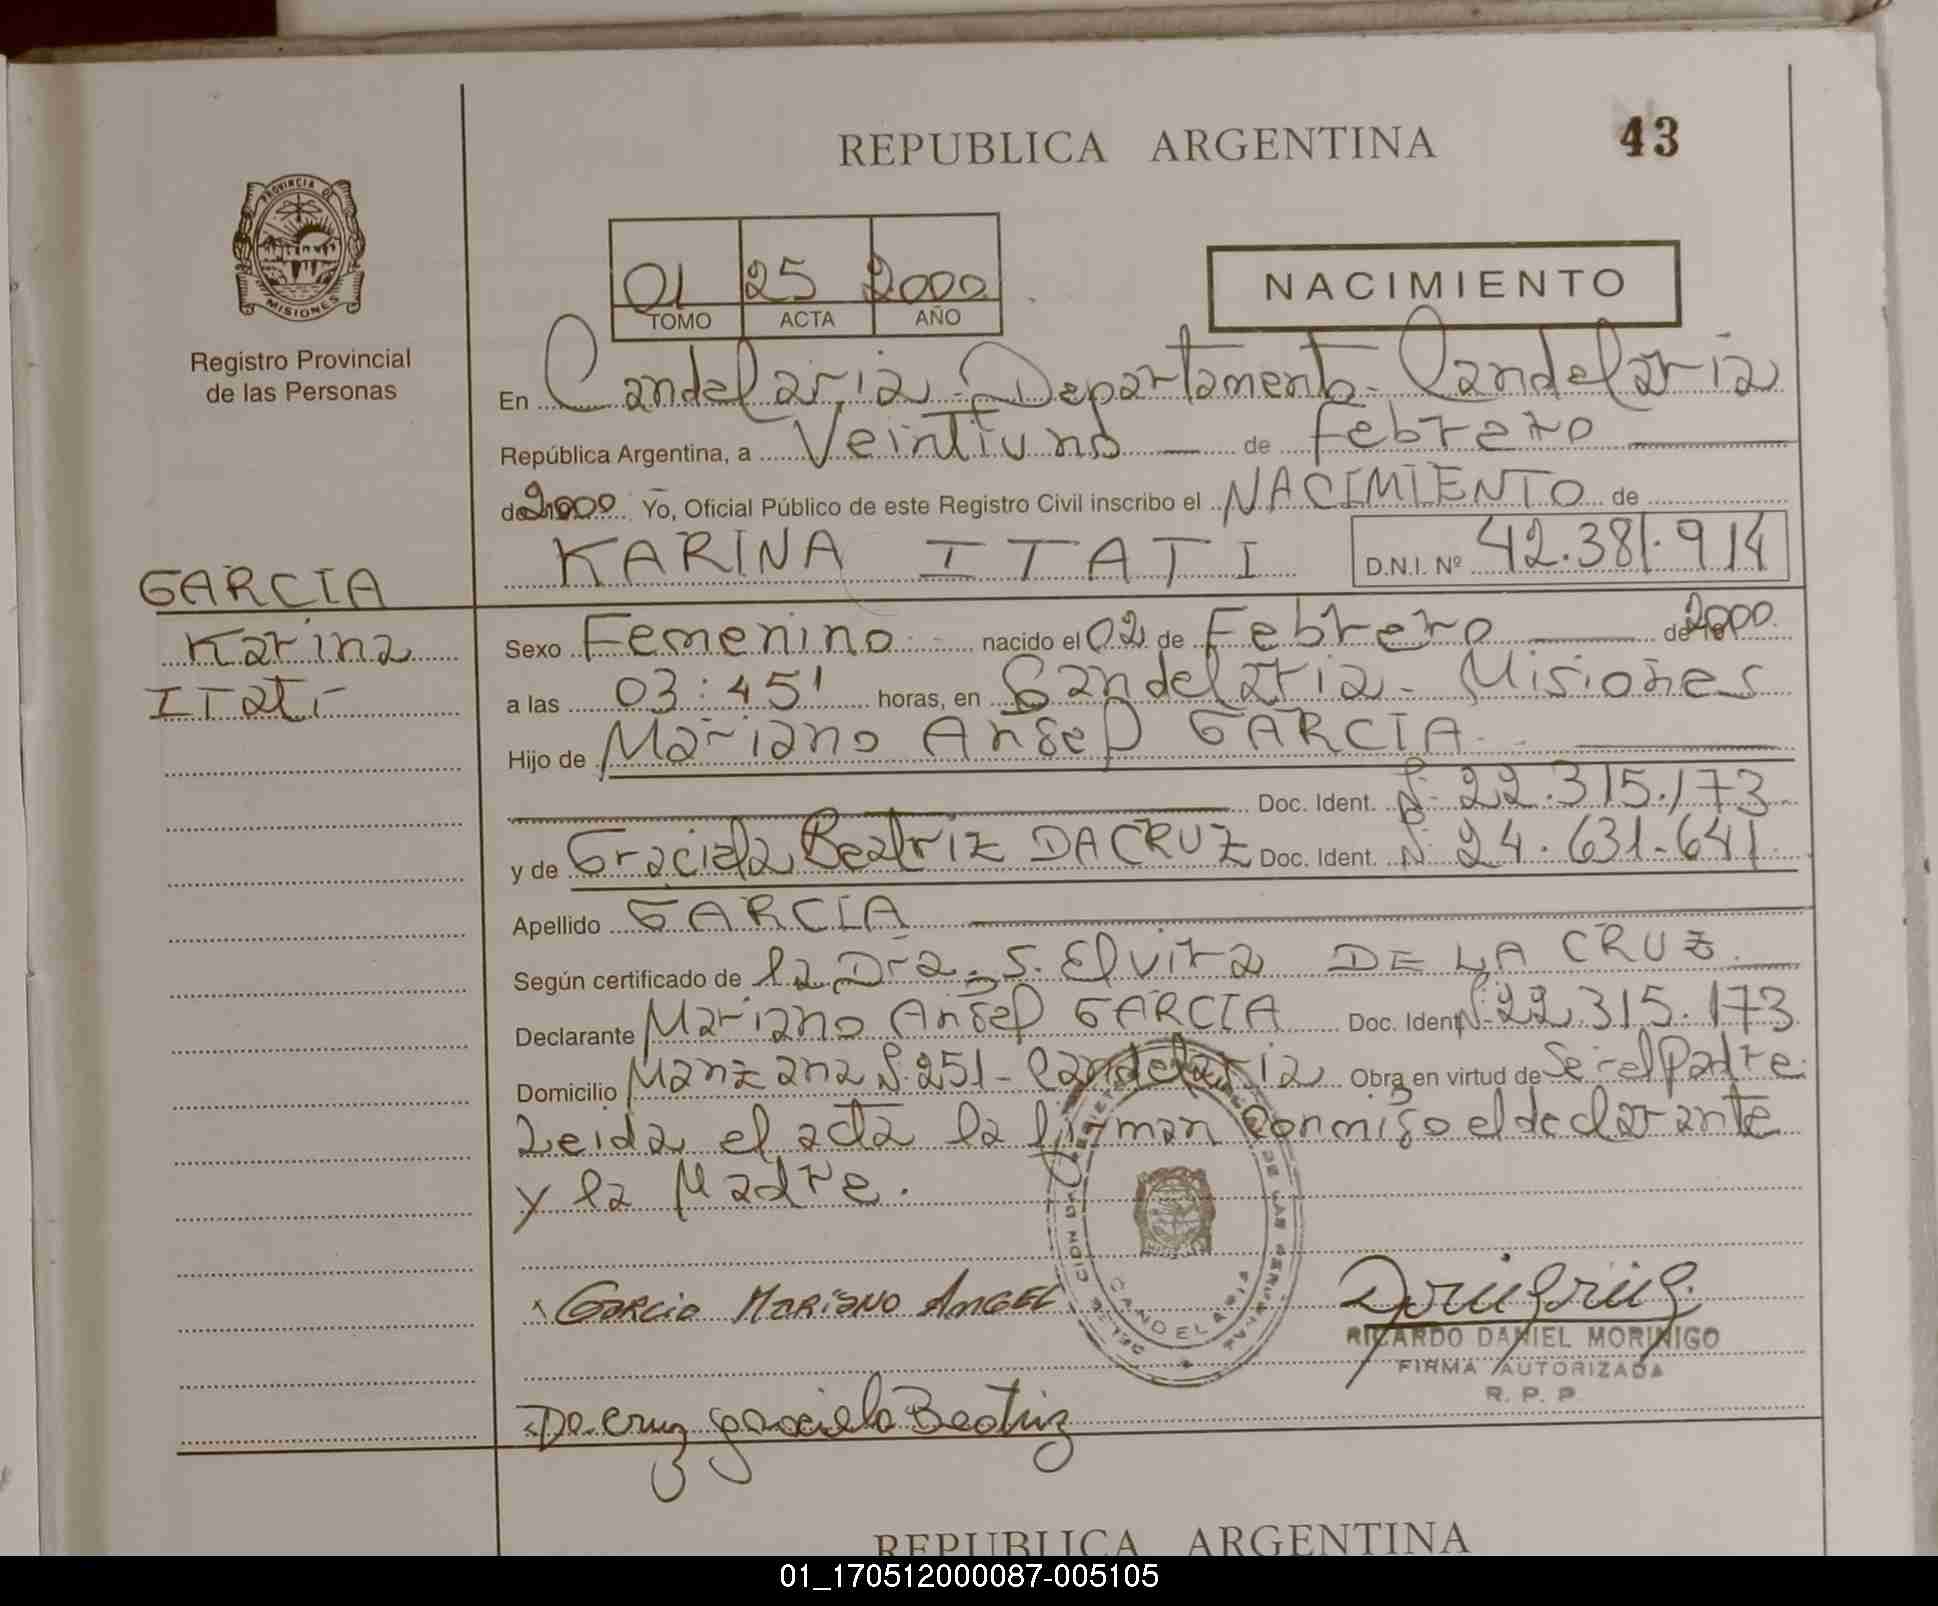 REPUBLICA ARGENTINA
43
PROVINCIA DE MISIONES
Registro Provincial
de las Personas
01 25 2000
TOMO ACTA AÑO
NACIMIENTO
En Candelaria - Departamento - Candelaria
República Argentina, a Veintiuno de Febrero
de 2000 Yo, Oficial Público de este Registro Civil inscribo el NACIMIENTO de
KARINA ITATI D.N.I. Nº 42.381.914
GARCIA
Karina
Itatí
Sexo Femenino nacido el 02 de Febrero de 2000
a las 03:45' horas, en Candelaria - Misiones
Hijo de Mariano Angel GARCIA
Doc. Ident. Nº 22.315.173
y de Graciela Beatriz DACRUZ Doc. Ident. Nº 24.631.641
Apellido GARCIA
Según certificado de la Dra. S. Elvira DE LA CRUZ
Declarante Mariano Angel GARCIA Doc. Ident. Nº 22.315.173
Domicilio Manzana Nº 251 - Candelaria Obra en virtud de Ser el Padre.
Leida el acta la firman conmigo el declarante
y la Madre.
DE LAS PERSONAS
CANDELARIA
Garcia Mariano Angel
RICARDO DANIEL MORINIGO
FIRMA AUTORIZADA
R. P. P
Da Cruz graciela Beatriz
REPUBLICA ARGENTINA
01_170512000087-005105